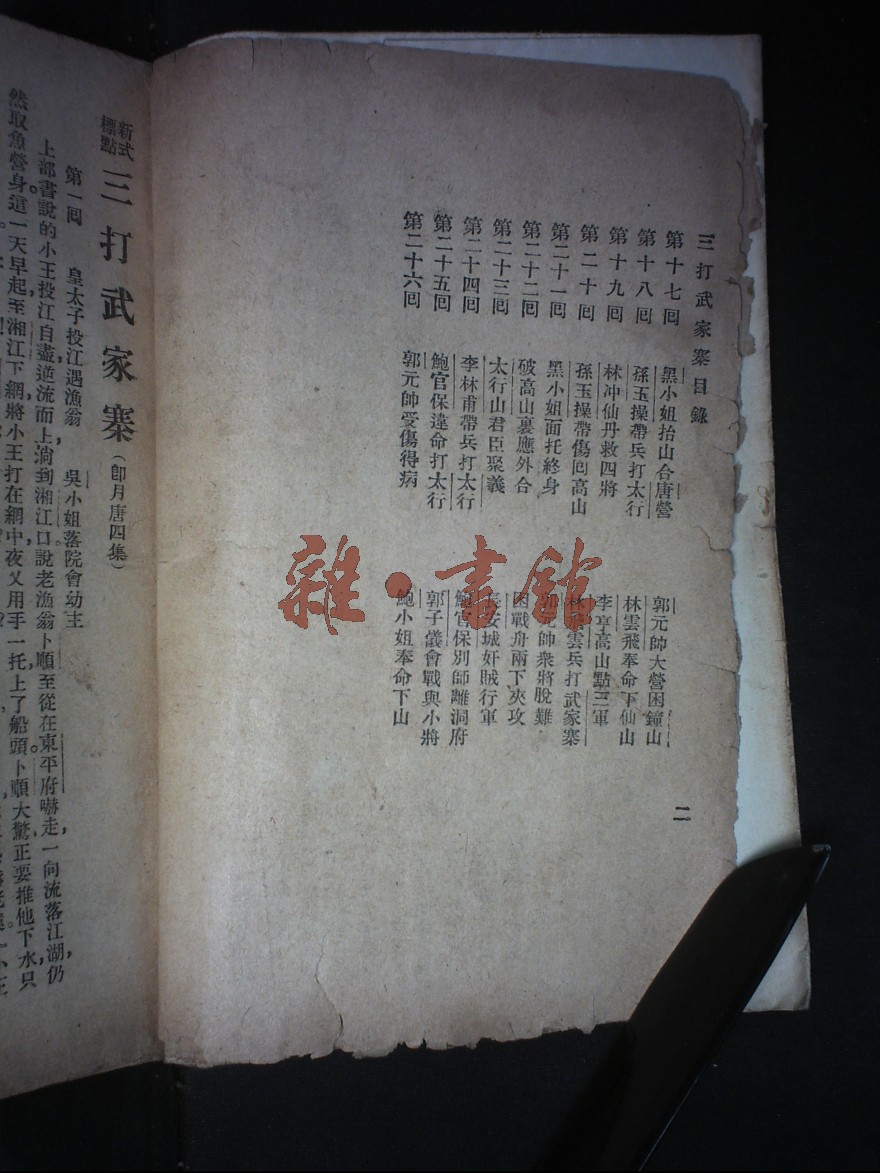 三打武家寨目錄
第十七回 黑小姐抬山合唐營 郭元帥大營困鐘山
第十八回 孫玉操帶兵打太行 林雲飛奉命下仙山
第十九回 林冲仙丹救四將 李亨高山點三軍
第二十回 孫玉操帶傷回高山 雲兵打武家寨
第二十一回 黑小姐面托終身 元帥衆將脫難
第二十二回 破高山裏應外合 困戰舟兩下夾攻
第二十三回 太行山君臣聚義 長安城奸賊行軍
第二十四回 李林甫帶兵打太行 鮑官保別師離洞府
第二十五回 鮑官保違命打太行 郭子儀會戰與小將
第二十六回 郭元帥受傷得病 鮑小姐奉命下山
二
雜·書館
新式標點 三打武家寨(卽月唐四集)
第一回 皇太子投江遇漁翁 吳小姐落院會幼主
上部書說的小王投江自盡,逆流而上,淌到湘江口。說老漁翁卜順至從在東平府嚇走,一向流落江湖,仍
然取魚營身。這一天早起,至湘江下網,將小王打在網中,夜叉用手一托,上了船頭。卜順大驚,正要推他下水,只